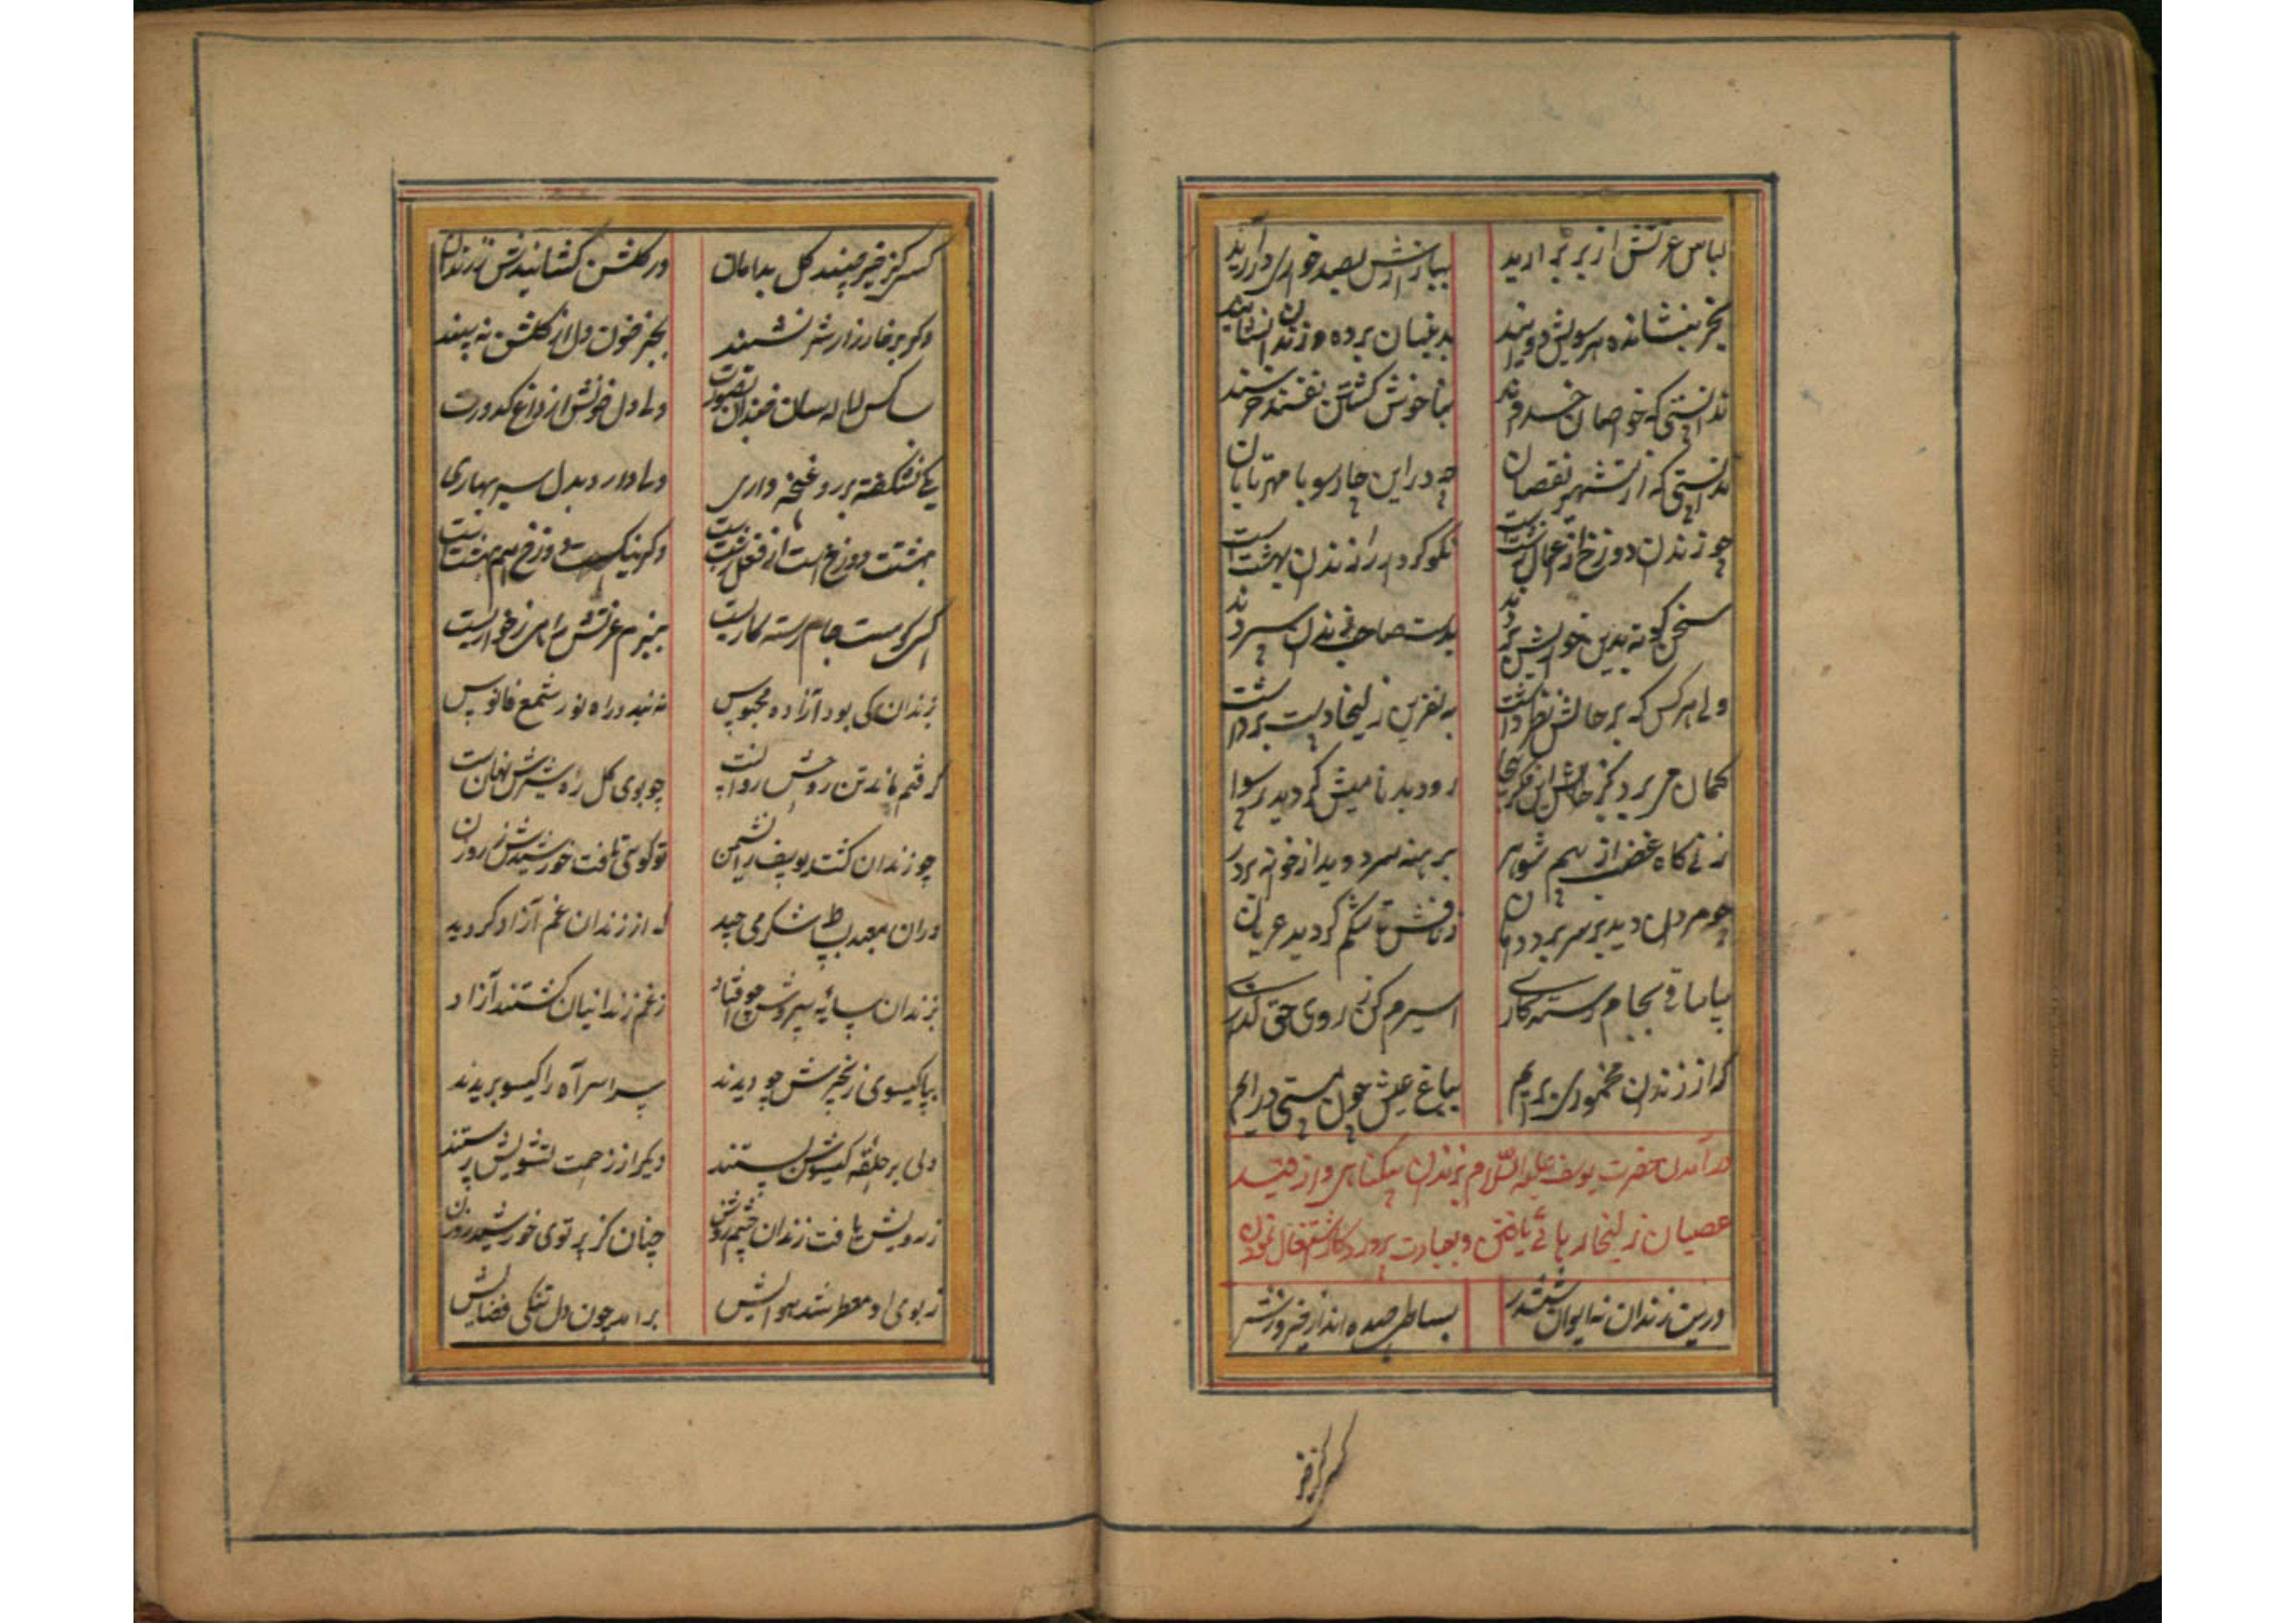 لباس عزتش از بر برارید ببازارش بصد خواری درارید
بخر بنشانده هر سویش دوانید بدینسان برده در زندان نشانید
ندانستی که خواصان خردمند بناخوش گشتن نفسند خرسند
ندانستی که از تشهیر نقصان چه در این چارسو با مهر تابان
چو زندان دوزخ از اعمال زشتست نکو کردار را زندان بهشتست
سخن کوته بدین خواریش بردند بدست صاحب زندان سپردند
ولی هر کس که بر حالش نظر داشت به نفرین زلیخا دست برداشت
کمان می برد کز حالش این
زنی گاه غضب از بیم شوهر برهنه سر دوید از خونه بر در
چو مردان دید بر سر برد دامان ز نافش تا شکم گردید عریان
بیا ساقی بجام رستگاری اسیرم کن ز روی حق گذاری
که از زندان مخموری برایم بباغ عیش چون مستی درایم
درآمدن حضرت یوسف علیه السلام بزندان بیگناهی و از قید
عصیان زلیخا رهائی یافتن و بعبادت پروردگار اشتغال نمودن
درین زندان نه ایوان ششدر بساطی چیده انداز خیر و از شر
کسی کز خیر
کسی کز خیر چیند گل بدامان در گلشن گشایندش ز زندان
وگر بر خارزار شر نشیند بجز خون دل از گلشن نه بیند
بسا کس لاله سان خندان بصورت ولی دل خونش از داغ کدورت
یکی نشکفته بر رو غنچه داری ولی دارد بدل سیر بهاری
بهشتت دوزخ است از فعل زشتست وگر نیکست دوزخ هم بهشتست
کسی کو مست جام رسته گاریست ببزم عزتش رامی ز خواریست
بزندان کی بود آزاده محبوس نه بندد راه نور شمع فانوس
گرفتم ماند تن روحش روانست چو بوی گل ره سیرش نهانست
چو زندان گشت یوسف را نشیمن تو گوئی تافت خورشیدش ز روزن
دران معبد بساط شکر می چید که از زندان غم آزاد گردید
بزندان سایهٔ سروش چو افتاد ز غم زندانیان گشتند آزاد
بپا گیسوی زنجیرش چو دیدند سراسر آه را گیسو بریدند
دلی بر حلقه گیسوش بستند دیگر از زحمت تشویش رستند
ز رویش یافت زندان چشم روشن چنان کز پرتوی خورشید روزن
ز بوی او معطر شد هوایش برامد چون دل تنگی فضایش